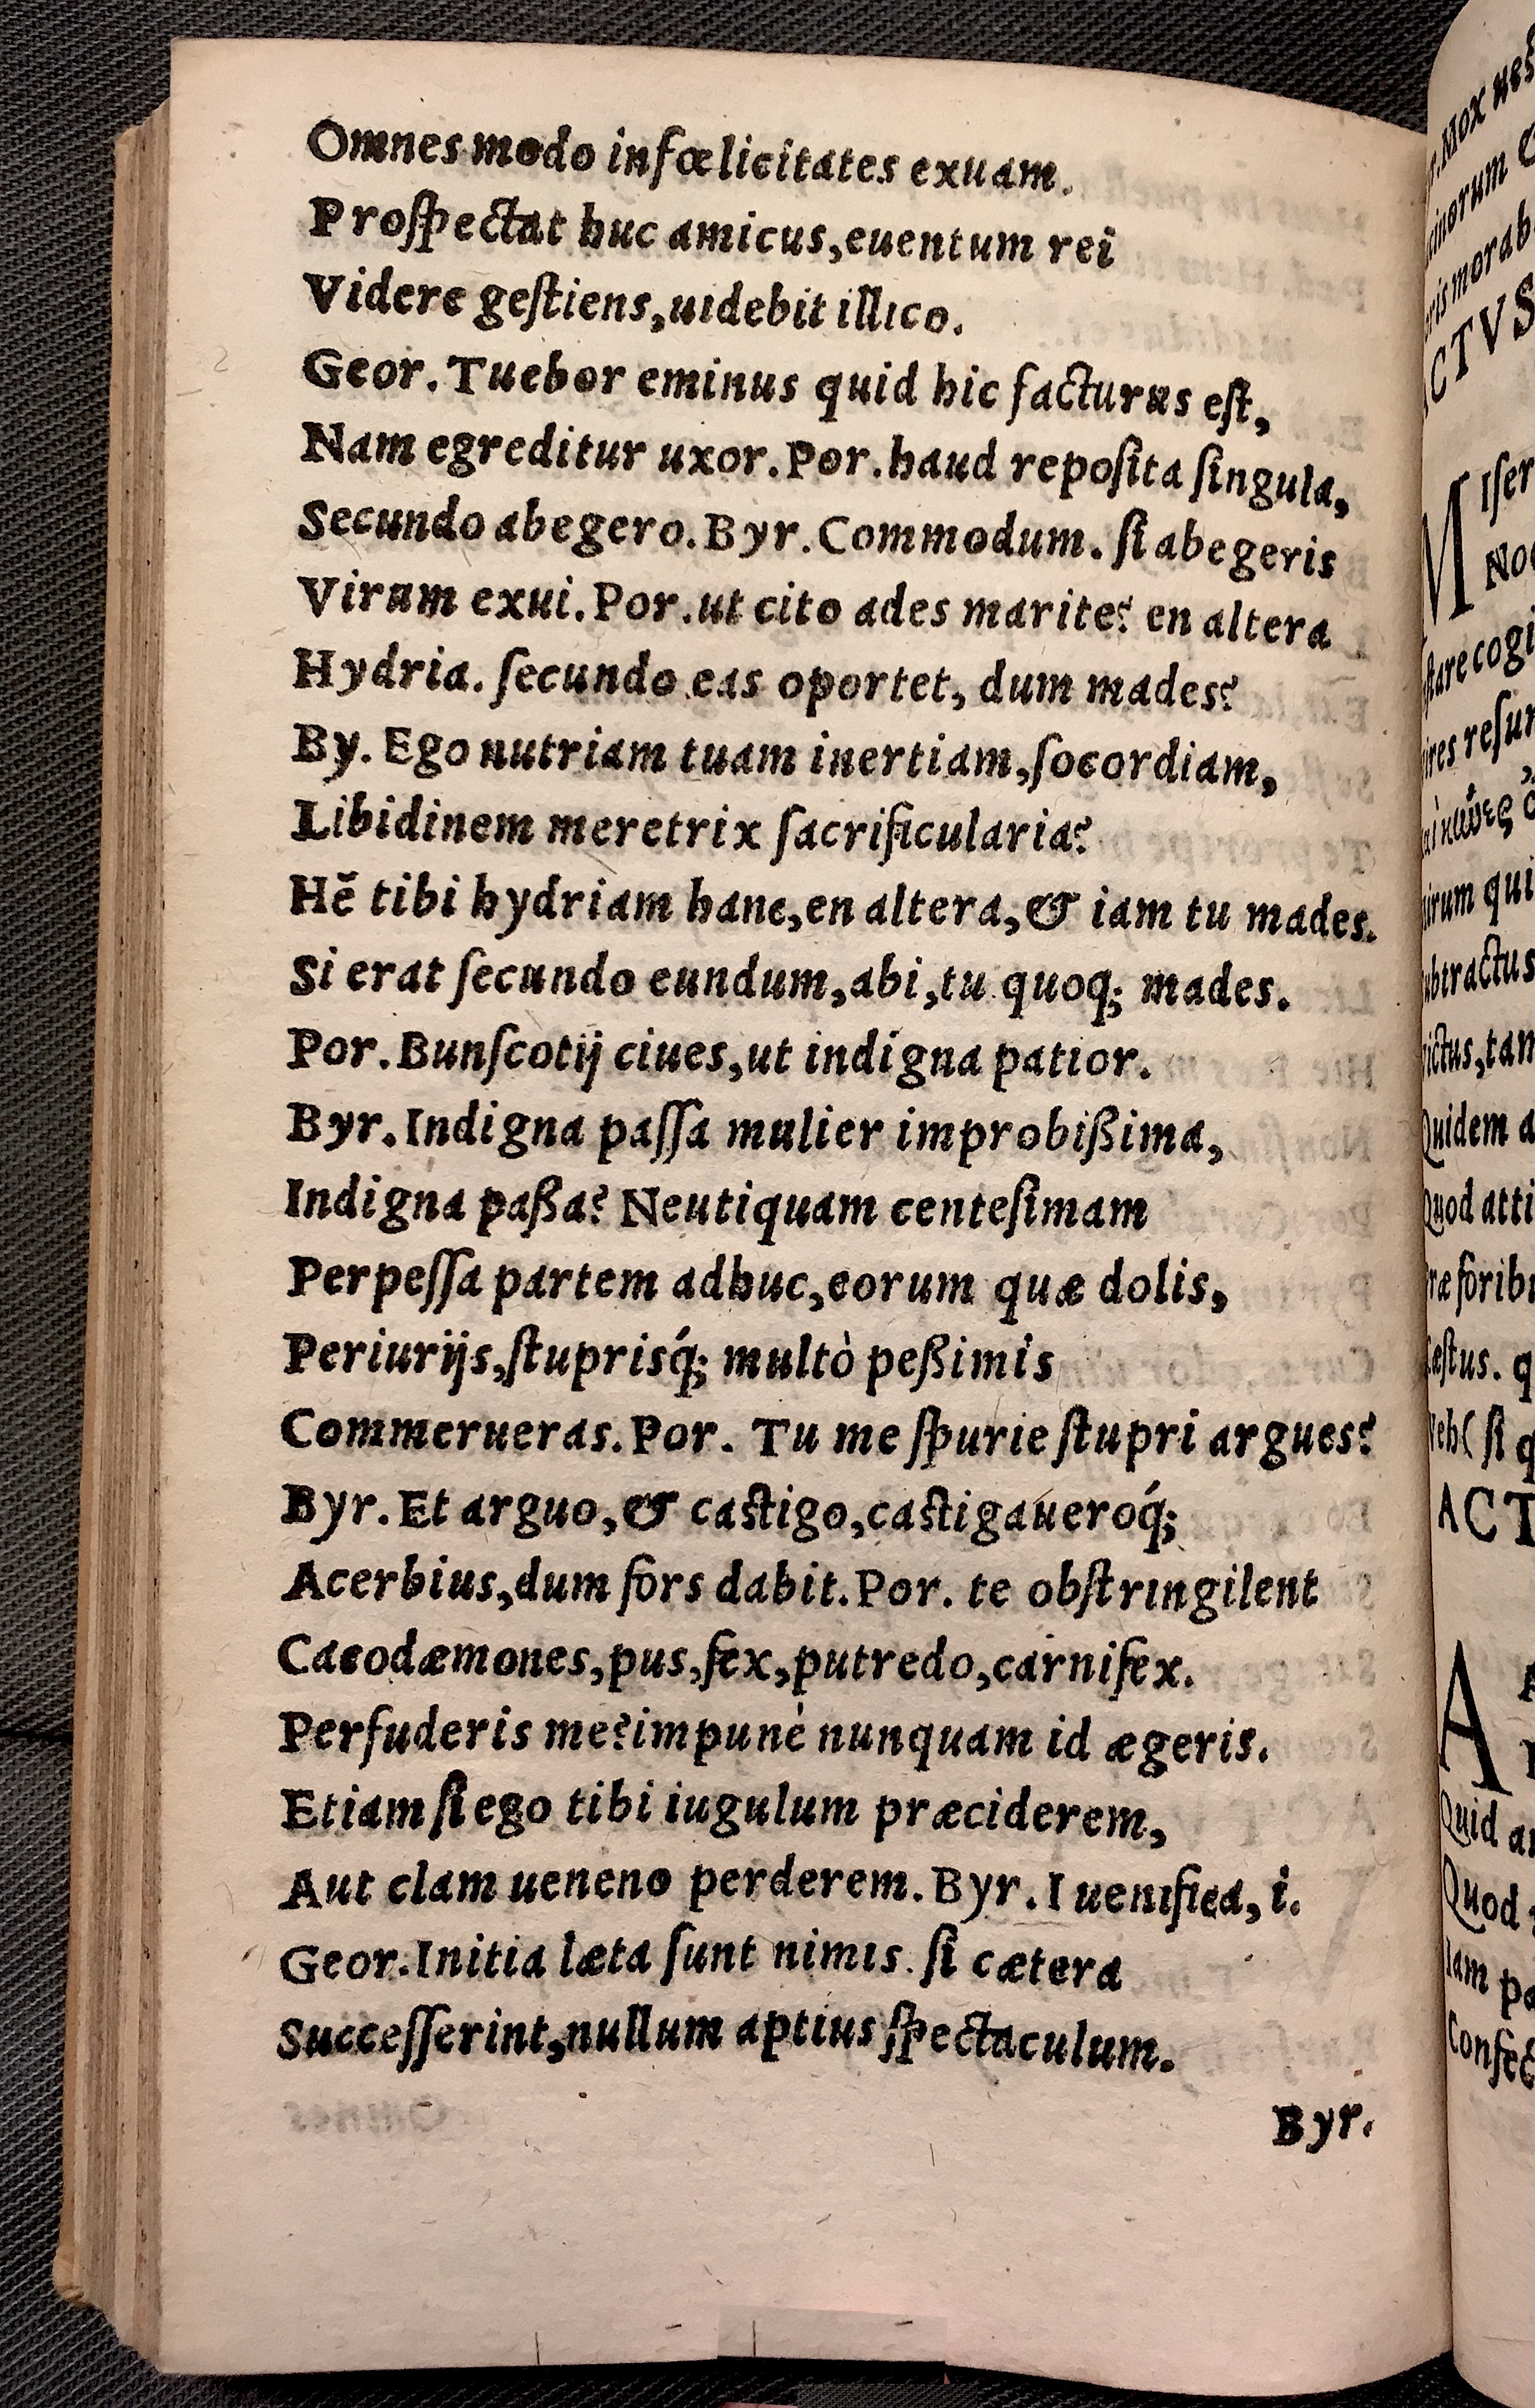 Omnes modo infœlicitates exuam.
Proſpectat huc amicus,euentum rei
Videre geſtiens,uidebit illico.
Geor. Tuebor eminus quid hic facturus eſt,
Nam egreditur uxor.Por.haud repoſita ſingula,
Secundo abegero.Byr.Commodum. ſi abegeris
Virum exui.Por.ut cito ades marite? en altera
Hydria. ſecundo eas oportet, dum mades?
By. Ego nutriam tuam inertiam,ſocordiam,
Libidinem meretrix ſacrificularia?
Hē tibi hydriam hanc,en altera,& iam tu mades.
Si erat ſecundo eundum,abi,tu quoq; mades.
Por.Bunſcotij ciues,ut indigna patior.
Byr.Indigna paſſa mulier improbißima,
Indigna paßa? Neutiquam centeſimam
Perpeſſa partem adhuc,eorum quæ dolis,
Periurijs,ſtuprisq́; multò peßimis
Commerueras.Por. Tu me ſpurie ſtupri argues?
Byr.Et arguo,& caſtigo,caſtigaueroq́;
Acerbius,dum fors dabit.Por. te obſtringilent
Cacodæmones,pus,fex,putredo,carnifex.
Perfuderis me?impunè nunquam id ægeris.
Etiam ſi ego tibi iugulum præciderem,
Aut clam ueneno perderem.Byr.I uenifica, i.
Geor.Initia læta ſunt nimis. ſi cætera
Succeſſerint,nullum aptius ſpectaculum.
Byr.
r.Mox
ACTVS
M
Iſer
ſtare cogi
ires reſur
irum qui
ubtractus
ictus,tam
Quidem a
Quod atti
ræ foribu
Veh( ſi q
ACT
A
Quid
Quod
Iam pa
Confec